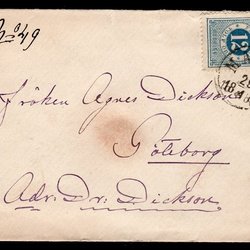 No 49
12
28
18
Fröken Agnes Dickson
Göteborg
Adr: Dr: Dickson